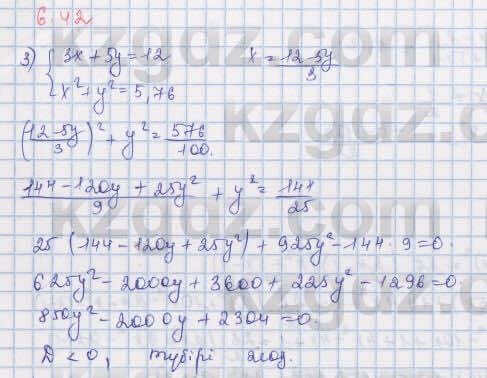 6.42
3) { 3x + 5y = 12   x = (12-5y)/3
x² + y² = 5,76
((12-5y)/3)² + y² = 576/100.
(144 - 120y + 25y²)/9 + y² = 144/25
25 (144 - 120y + 25y²) + 925y² - 144 · 9 = 0.
625y² - 2000y + 3600 + 225y² - 1296 = 0
850y² - 2000y + 2304 = 0.
D < 0, түбірі жоқ.
kzgdz.com